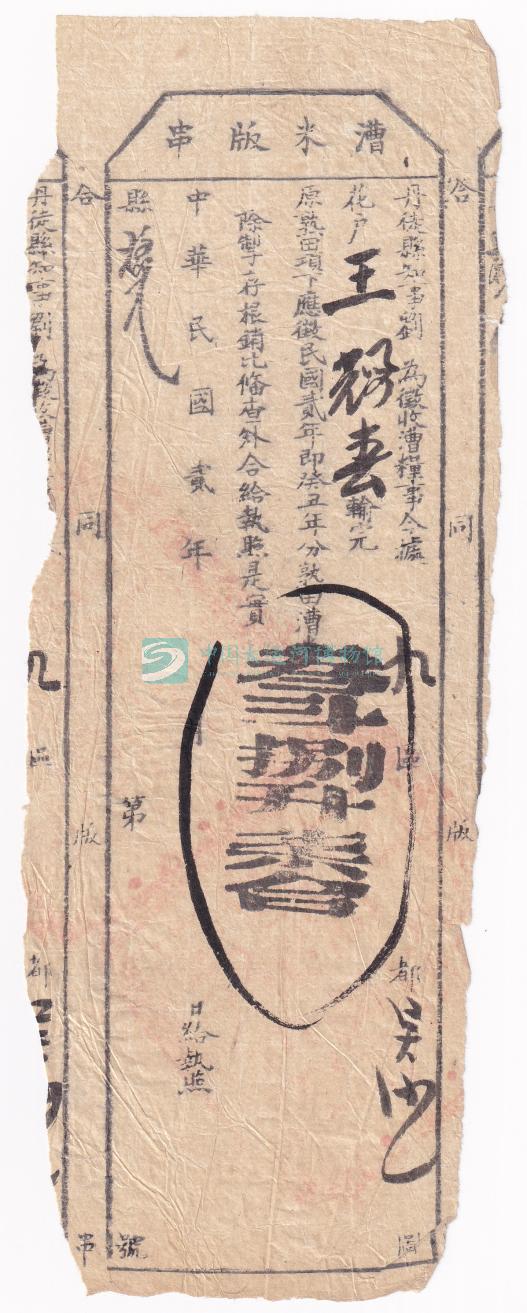 漕米版串
丹徒縣知事劉 為徵收漕糧事今據
九區 都 圖
花户王 春輸完
原熟田項下應徵民國貳年即癸丑年分熟田漕
叁斗捌升柒合
除掣存根銷比備查外合給執照是實
中華民國貳年 月 日給執照
縣 第 號
合同版串
合同版
丹徒縣知事劉
九區 都
中国大运河博物馆